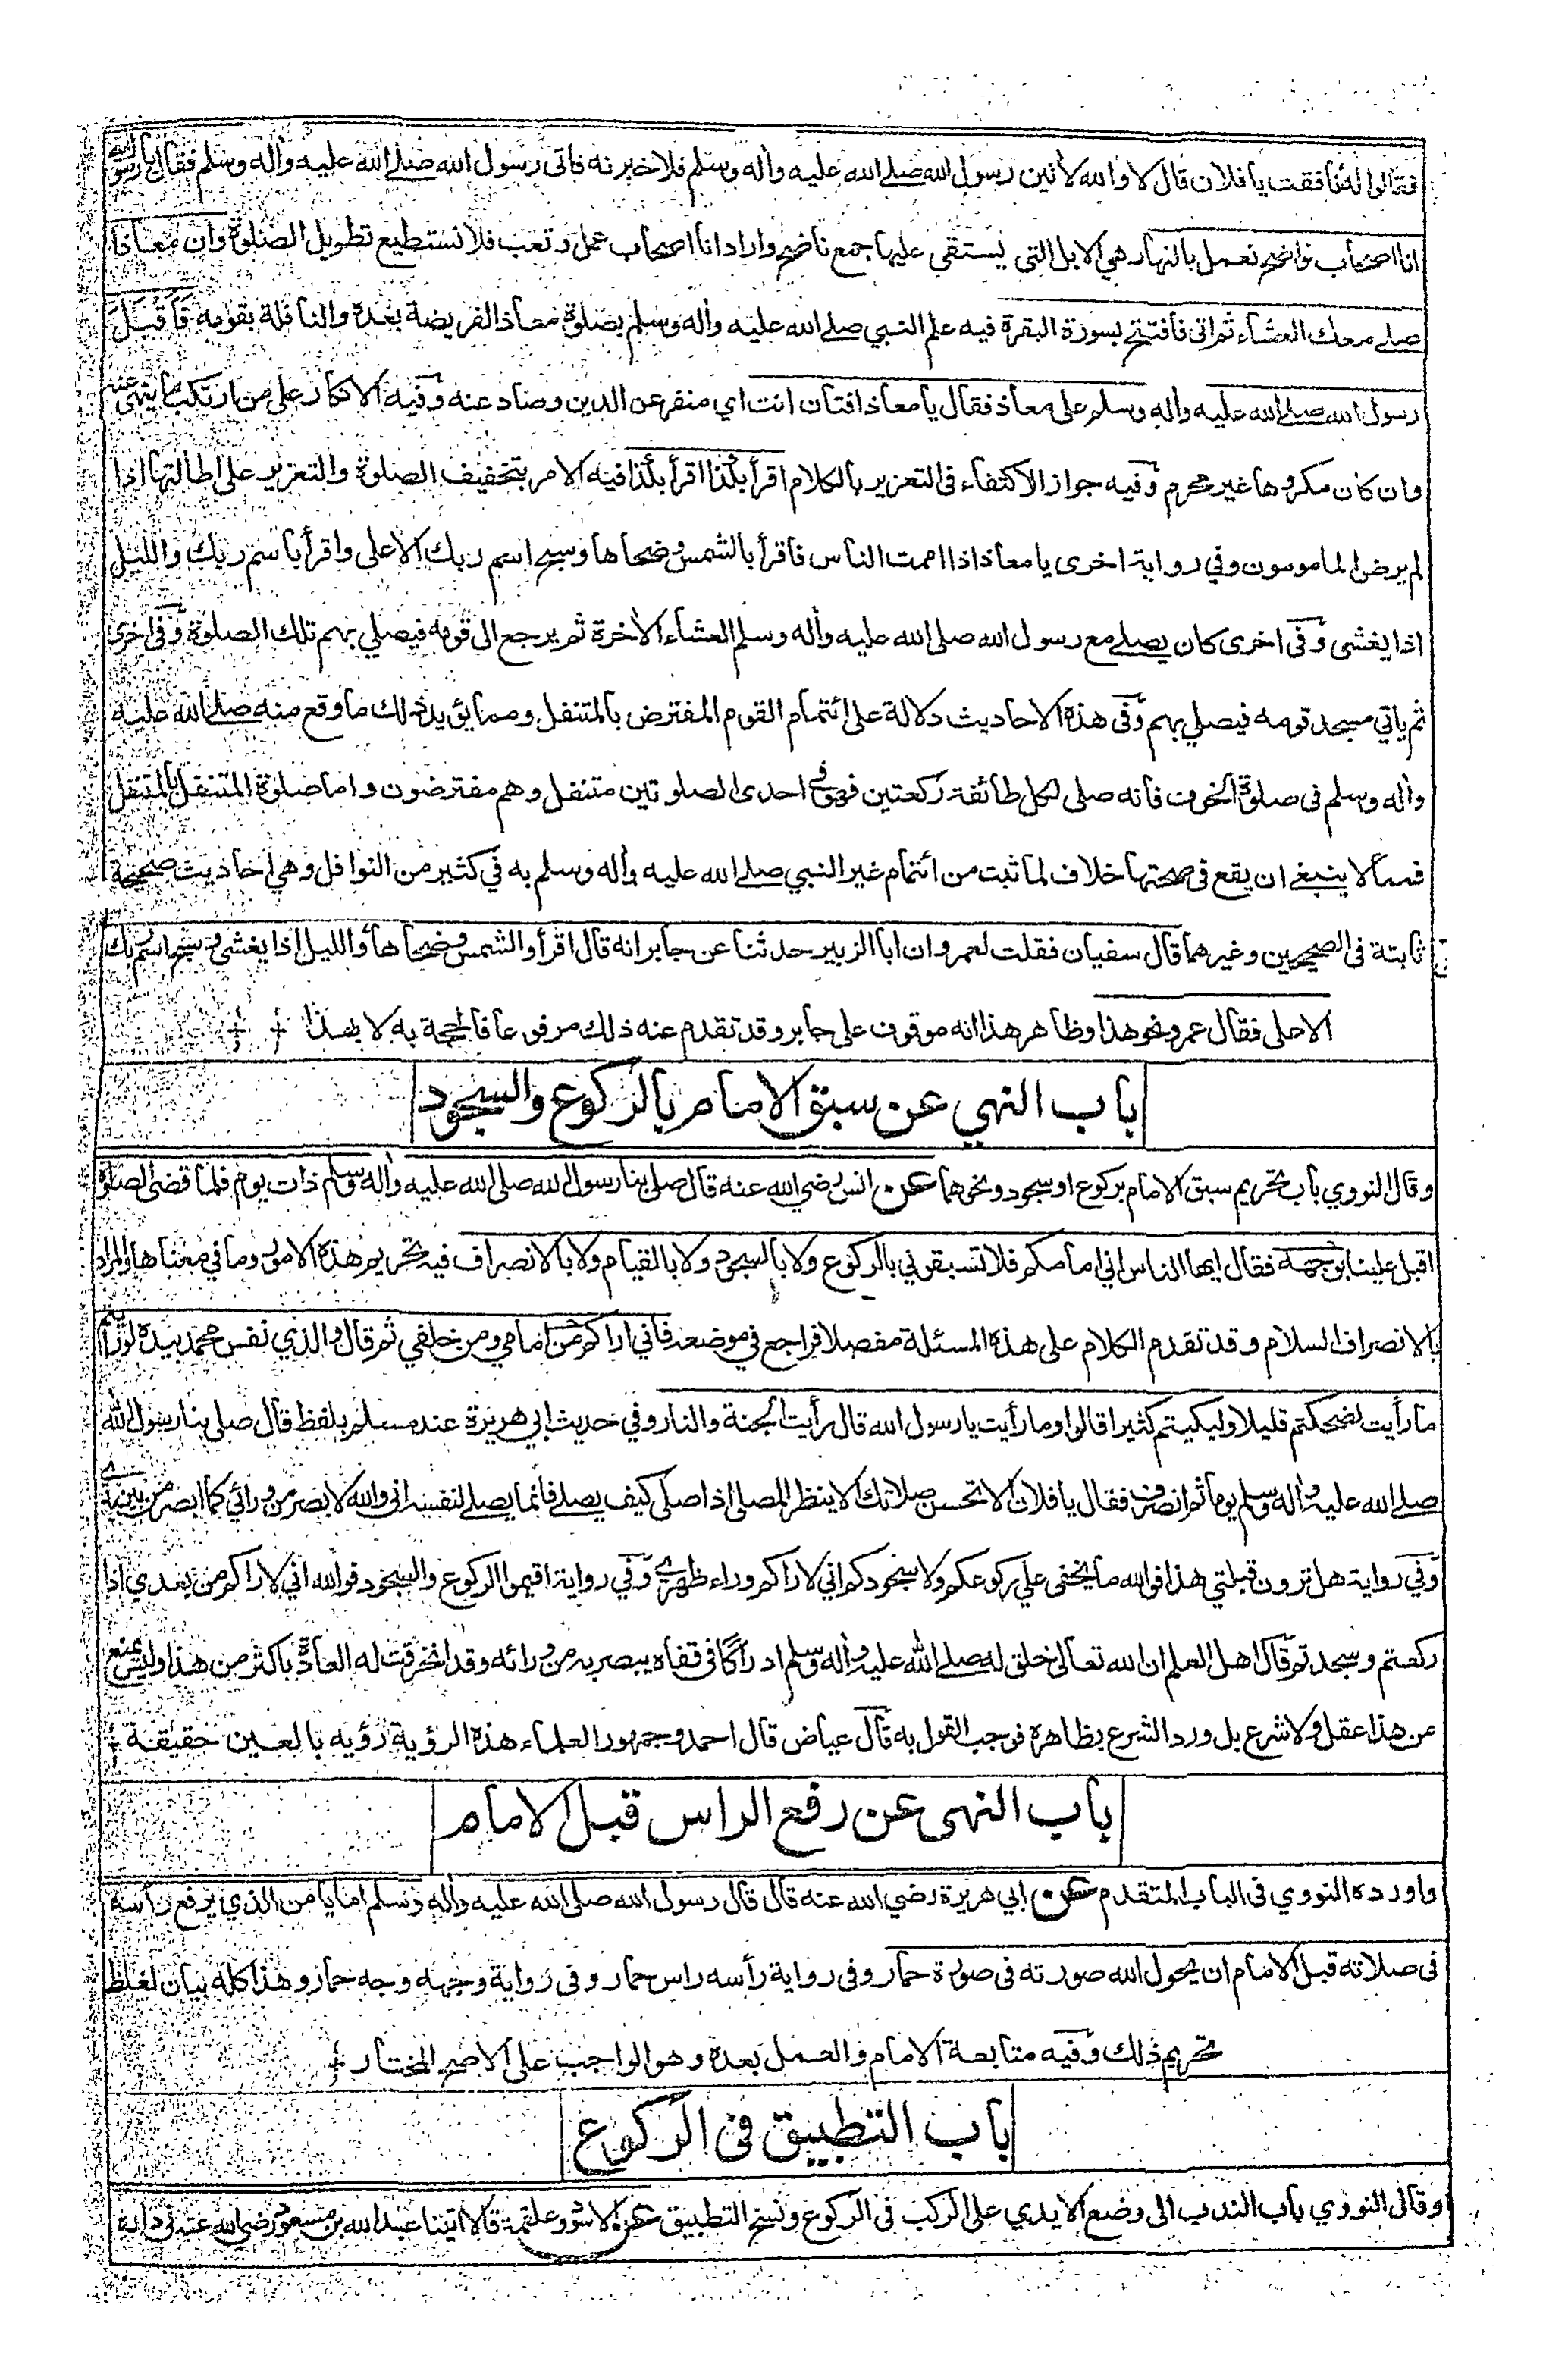 فقالوا له نافقت يا فلان قال لا والله لاتين رسول الله صلے الله عليه واله وسلم فلاخبرنه فاتى رسول الله صلے الله عليه واله وسلم فقال يا رسول الله
انا اصحاب نواضح نعمل بالنهار هي الابل التي يستقى عليها جمع ناضح واراد انا اصحاب عمل وتعب فلا نستطيع تطويل الصلوة وان معاذا
صلے معك العشاء ثم اتى فافتتح بسورة البقرة فيه علم النبي صلے الله عليه واله وسلم بصلوة معاذ الفريضة بعده والنافلة بقومه فاقبل
رسول الله صلے الله عليه واله وسلم على معاذ فقال يا معاذ افتان انت اي منفر عن الدين وصاد عنه وفيه الانكار على من ارتكب ما ينهى عنه
وان كان مكروها غير محرم وفيه جواز الاكتفاء فى التعزير بالكلام اقرأ بكذا اقرأ بكذا فيه الامر بتخفيف الصلوة والتعزير على اطالتها اذا
لم يرض المامومون وفي رواية اخرى يا معاذ اذا اممت الناس فاقرأ بالشمس وضحاها وسبح اسم ربك الاعلى واقرأ باسم ربك والليل
اذا يغشى وفى اخرى كان يصلے مع رسول الله صلى الله عليه واله وسلم العشاء الاخرة ثم يرجع الى قومه فيصلي بهم تلك الصلوة وفى اخرى
ثم ياتي مسجد قومه فيصلي بهم وفى هذه الاحاديث دلالة على ائتمام القوم المفترض بالمتنفل ومما يؤيد ذلك ما وقع منه صلے الله عليه
واله وسلم فى صلوة الخوف فانه صلى لكل طائفة ركعتين فهو في احدى الصلوتين متنفل وهم مفترضون واما صلوة المتنفل بالمتنفل
فمما لا ينبغي ان يقع فى صحتها خلاف لما ثبت من ائتمام غير النبي صلے الله عليه واله وسلم به في كثير من النوافل وهي احاديث صحيحة
ثابتة فى الصحيحين وغيرهما قال سفيان فقلت لعمرو ان ابا الزبير حدثنا عن جابر انه قال اقرأ والشمس وضحاها والليل اذا يغشى وسبح اسم ربك
الاعلى فقال عمرو نحو هذا وظاهر هذا انه موقوف على جابر وقد تقدم عنه ذلك مرفوعا فالحجة به لا بهذا
باب النهي عن سبق الامام بالركوع والسجود
وقال النووي باب تحريم سبق الامام بركوع او سجود ونحوهما عن انس رضي الله عنه قال صلى بنا رسول الله صلى الله عليه واله وسلم ذات يوم فلما قضى الصلوة
اقبل علينا بوجهه فقال ايها الناس اني امامكم فلا تسبقوني بالركوع ولا بالسجود ولا بالقيام ولا بالانصراف فيه تحريم هذه الامور وما في معناها والمراد
بالانصراف السلام وقد تقدم الكلام على هذه المسئلة مفصلا فراجع في موضعه فاني اراكم من امامي ومن خلفي ثم قال والذي نفس محمد بيده لو رأيتم
ما رأيت لضحكتم قليلا ولبكيتم كثيرا قالوا وما رأيت يا رسول الله قال رأيت الجنة والنار وفي حديث ابي هريرة عند مسلم بلفظ قال صلى بنا رسول الله
صلے الله عليه واله وسلم يوما ثم انصرف فقال يا فلان الا تحسن صلاتك الا ينظر المصلي اذا صلى كيف يصلے فانما يصلے لنفسه اني والله لابصر من ورائي كما ابصر من بين يدي
وفي رواية هل ترون قبلتي هذا فوالله ما يخفى علي ركوعكم ولا سجودكم اني لاراكم وراء ظهري وفي رواية اقيموا الركوع والسجود فوالله اني لاراكم من بعدي اذا
ركعتم وسجدتم قال اهل العلم ان الله تعالى خلق له صلے الله عليه واله وسلم ادراكا فى قفاه يبصر به من ورائه وقد انخرقت له العادة باكثر من هذا وليس يمنع
من هذا عقل ولا شرع بل ورد الشرع بظاهره فوجب القول به قال عياض قال احمد وجمهور العلماء هذه الرؤية رؤية بالعين حقيقة
باب النهى عن رفع الراس قبل الامام
واورده النووي فى الباب المتقدم عن ابي هريرة رضي الله عنه قال قال رسول الله صلى الله عليه واله وسلم اما يامن الذي يرفع رأسه
فى صلاته قبل الامام ان يحول الله صورته فى صورة حمار وفى رواية رأسه راس حمار وفى رواية وجهه وجه حمار وهذا كله بيان لغلظ
تحريم ذلك وفيه متابعة الامام والعمل بعده وهو الواجب على الاصح المختار
باب التطبيق فى الركوع
وقال النووي باب الندب الى وضع الايدي على الركب فى الركوع ونسخ التطبيق عن الاسود وعلقمة قالا اتينا عبد الله بن مسعود رضي الله عنه في داره